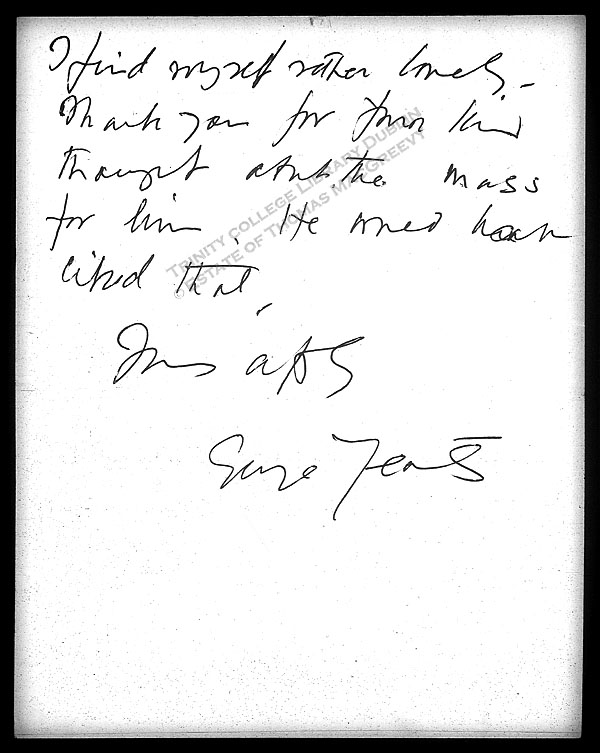 I find myself rather lonely -
Thank you for your kind
thought about the mass
for him. He would have
liked that.
Yours affly
George Yeats
TRINITY COLLEGE LIBRARY DUBLIN
© ESTATE OF THOMAS MACGREEVY